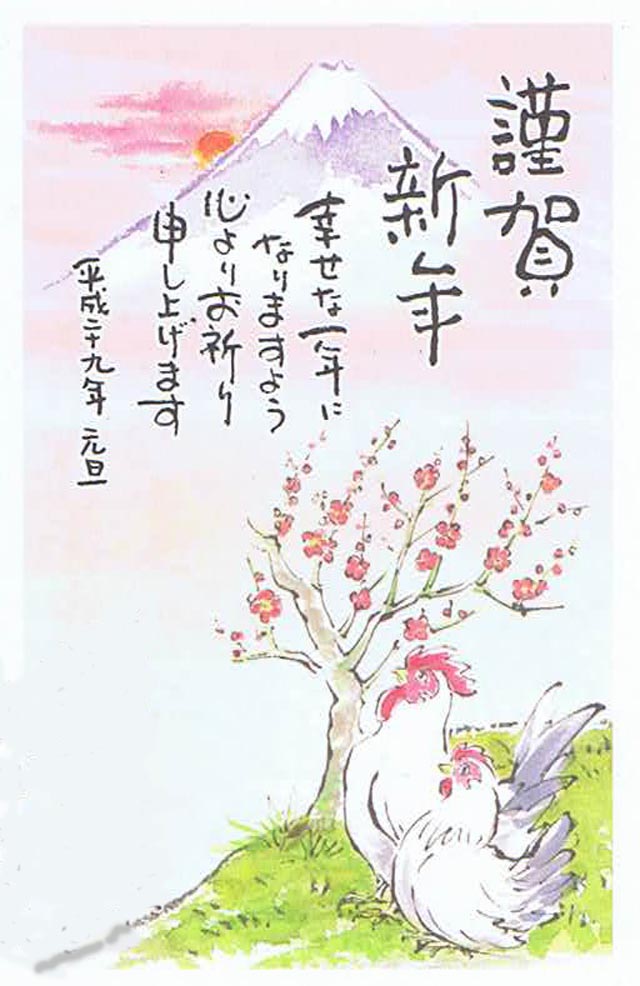 謹賀
新年
幸せな一年に
なりますよう
心よりお祈り
申し上げます
平成二十九年 元旦